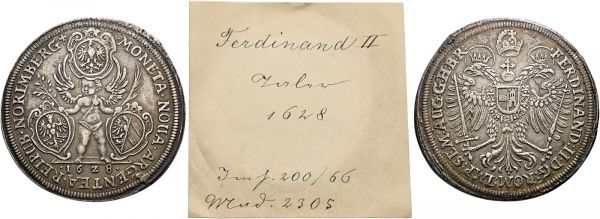 MONETA·NOVA·ARGENTEA·REIPUB·NORIMBERG·
1628
Ferdinand II
Taler
1628
Imh. 200/66
Mad. 2305
FERDINAND:II·D:G:ROM:IMP:SEM:AUG:G:H:B:R·